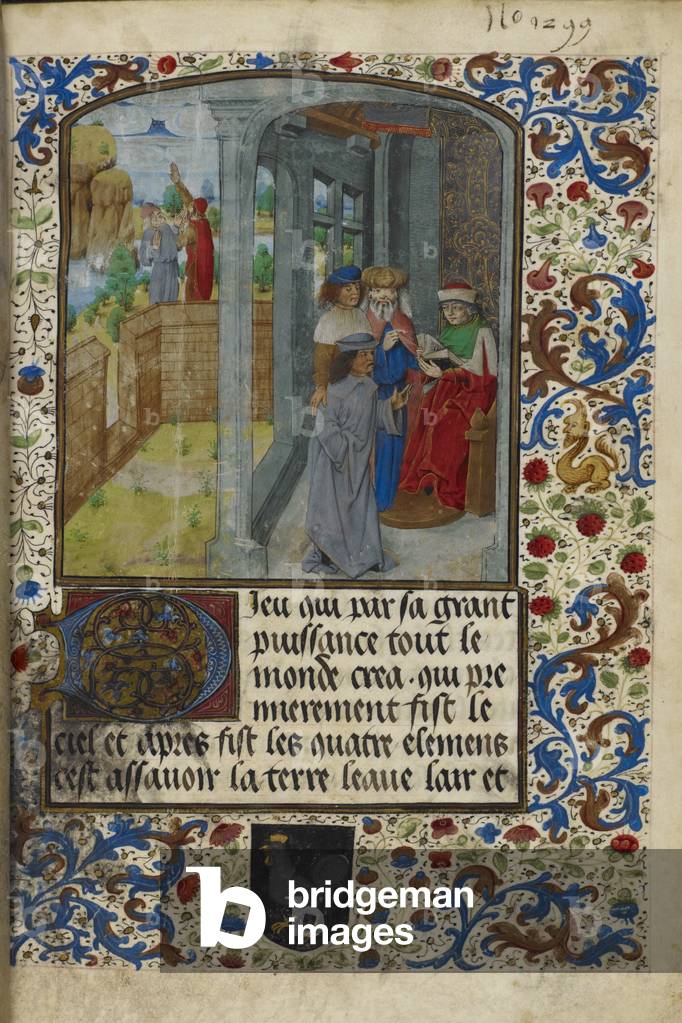 Dieu qui par sa grant
puissance tout le
monde crea · qui pre
mierement fist le
ciel et apres fist les quatre elemens
cest assauoir la terre leaue lair et
b bridgeman
images